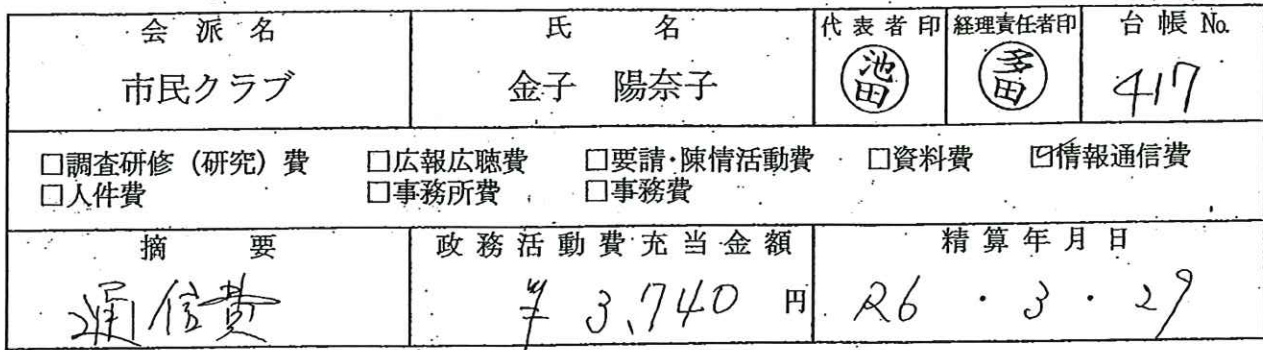 会派名 氏名 代表者印 経理責任者印 台帳No.
市民クラブ 金子 陽奈子 池田 多田 417
□調査研修（研究）費 □広報広聴費 □要請・陳情活動費 □資料費 ☑情報通信費
□人件費 □事務所費 □事務費
摘要 政務活動費充当金額 精算年月日
通信費 ¥3,740円 R6・3・29